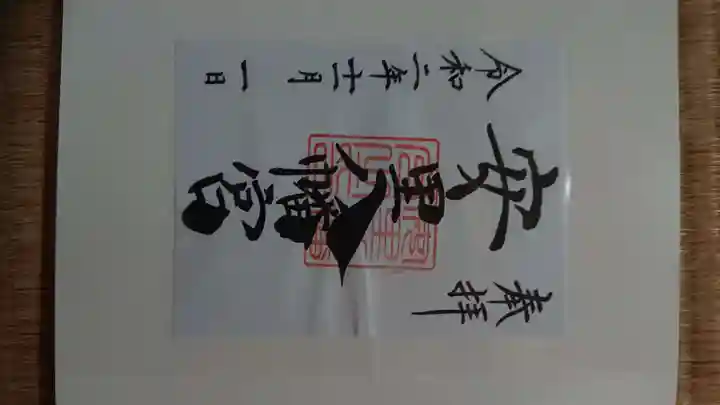 奉拝
安里八幡宮
令和二年十一月一日